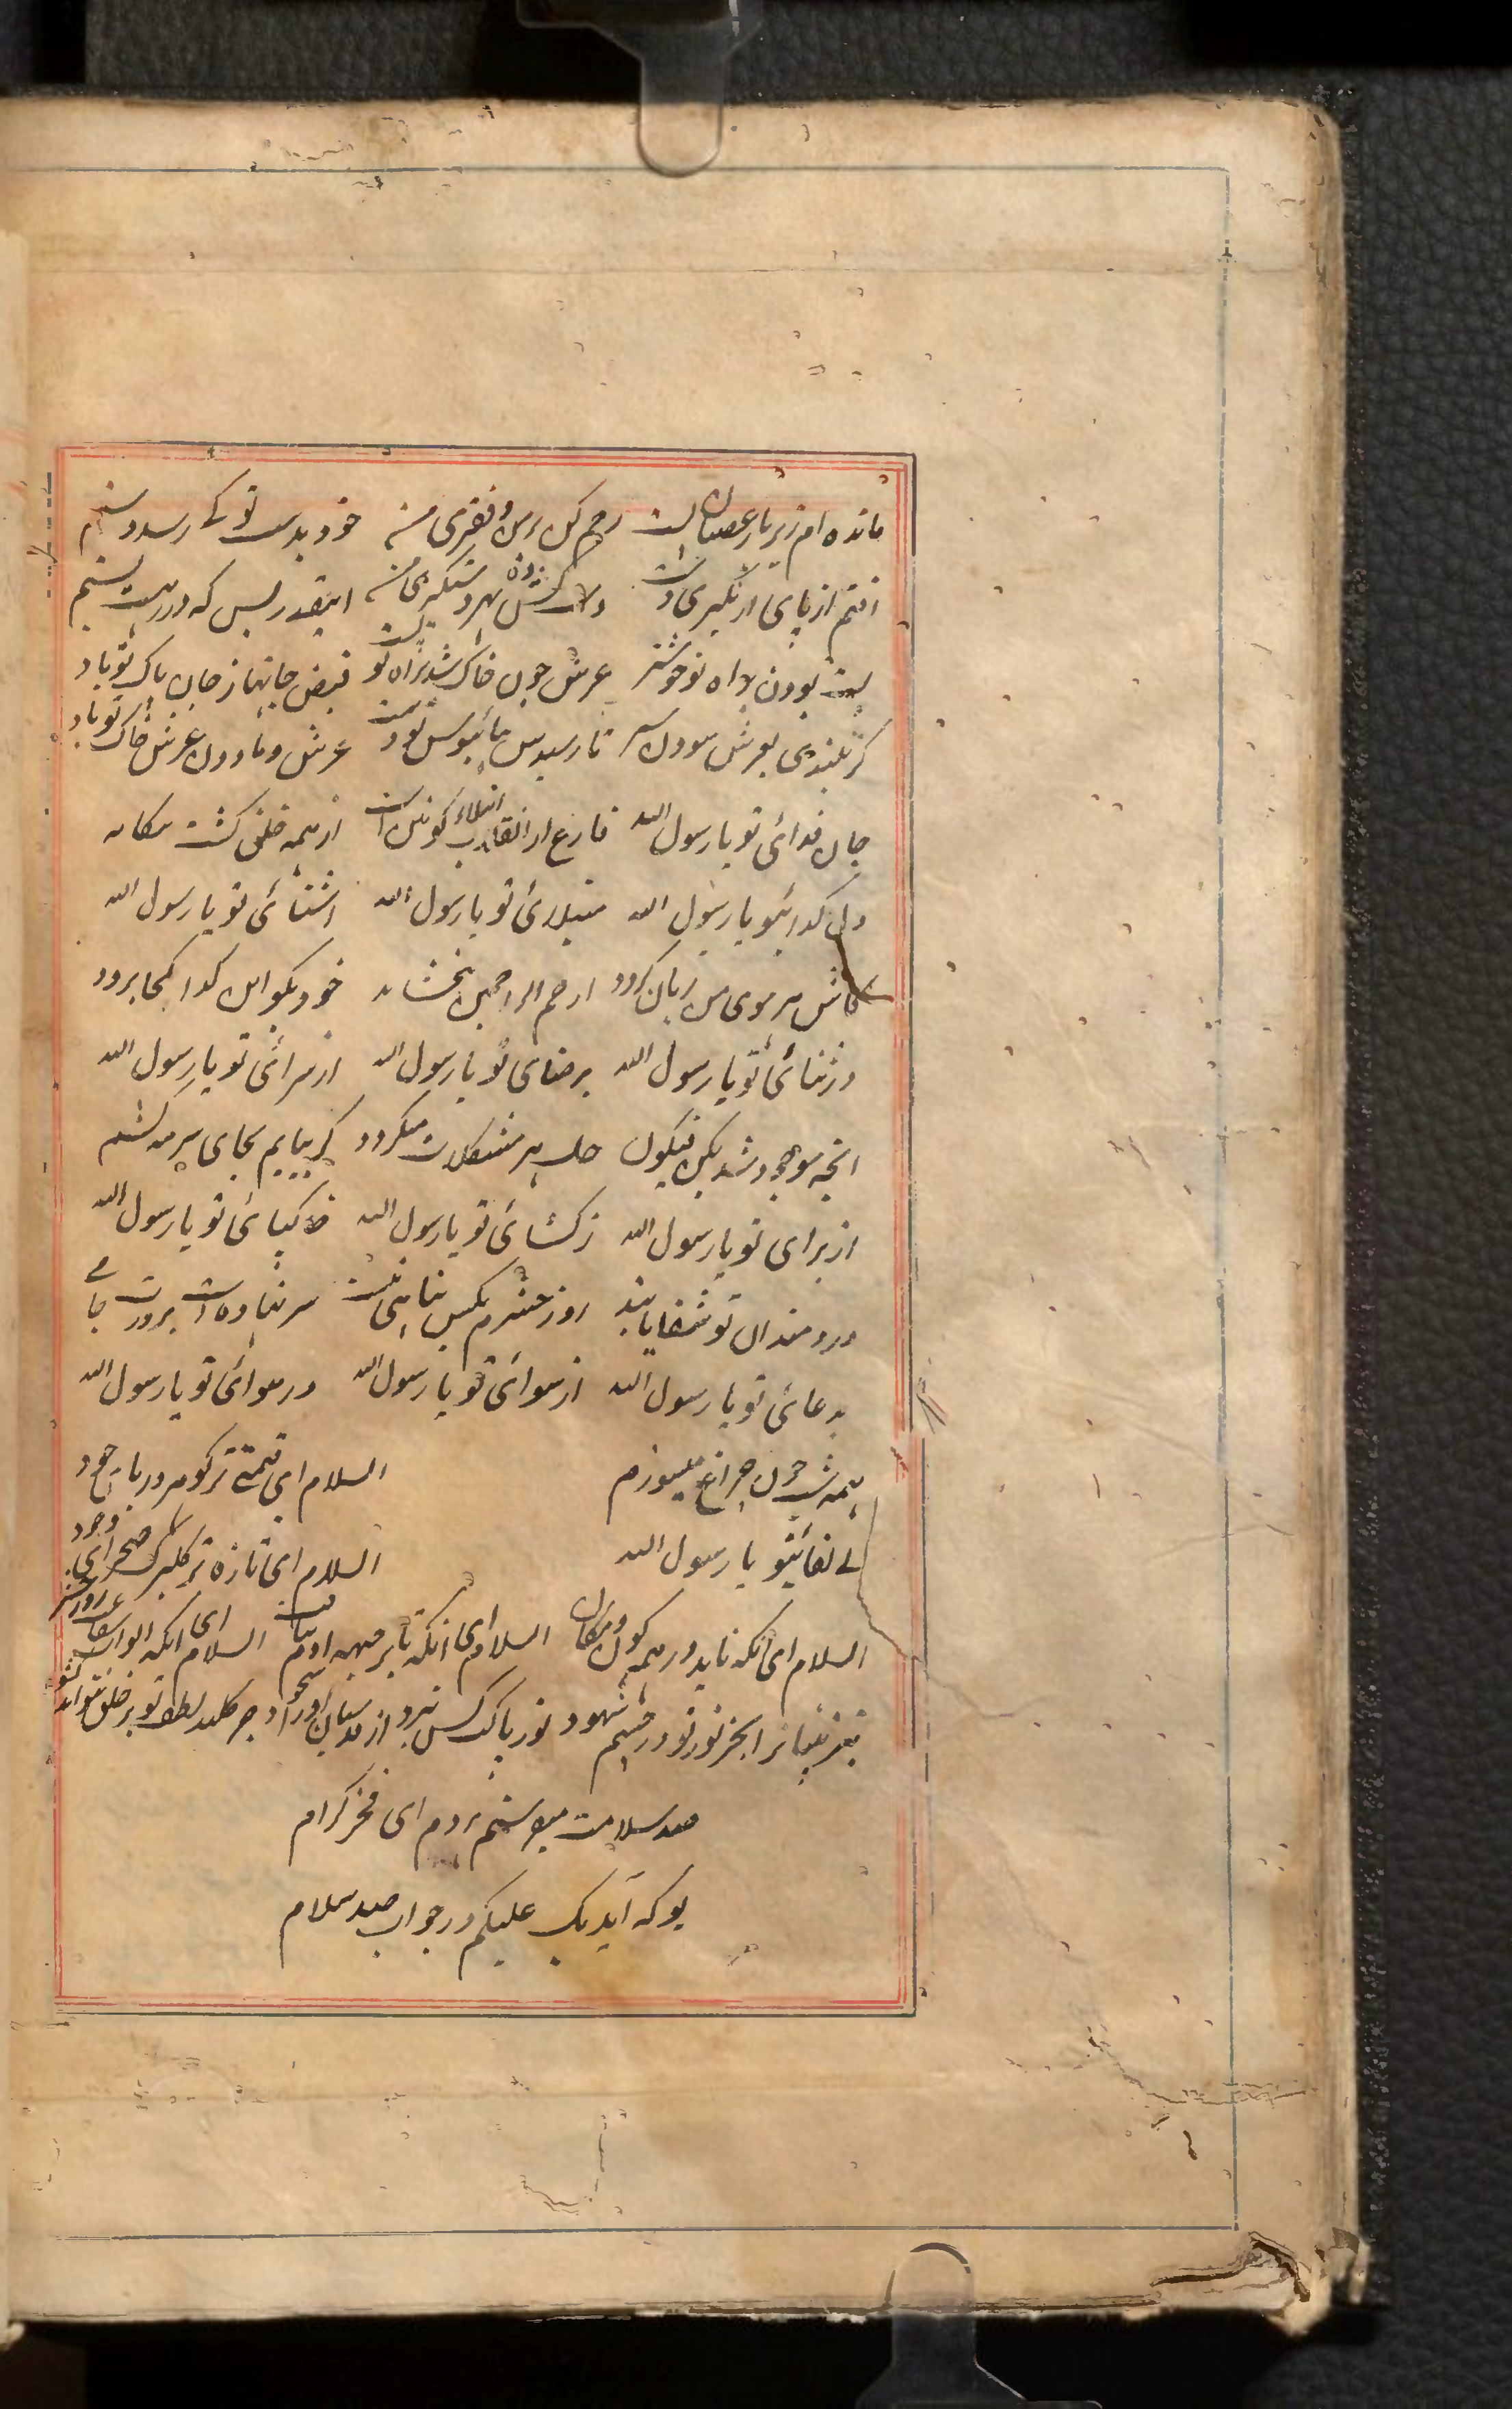 مانده ام زیر بار عصیان پست رحم کن بر من و فقیری من خود بدست تو کے رسد دستم
افتم از پای ار نگیری دست دست کش بهر دستگیری من اینقدر بس که در رهت پستم
پست بودن براه تو خوشتر عرش چون خاک شد براه تو پست فیض جانها ز جان پاک تو باد
کز بلندی بعرش سودن سر تا رسیدش بپائبوس تو دست عرش و مادون عرش خاک تو باد
جان فدائی تو یا رسول الله فارغ از انقلاب کونین است از همه خلق کشت بیکانه
دل کدائیتو یا رسول الله مبتلائ تو یا رسول الله اشنائی تو یا رسول الله
کاش هر موی من زبان کردد ارحم الراحمین بخشاید خود بکو این کدا کجا برود
در ثنائی تو یا رسول الله برضای تو یا رسول الله از سرائی تو یا رسول الله
انچه موجود شد بکن فیکون حل هر مشکلات میکردد کر بیابم بجای سرمه کشم
از برای تو یا رسول الله ز کشائی تو یا رسول الله خاکپائی تو یا رسول الله
دردمندان تو شفا یابند روز حشرم بکس پناهی نیست سر نهاده است بر درت جامے
بدعائی تو یا رسول الله از سوائی تو یا رسول الله در هوائی تو یا رسول الله
همه شب چون چراغ میسوزم السلام ای قیمتے تر کوهر دریا جود
بے لقائیتو یا رسول الله السلام ای تازه تر کلبرک صحرای وجود
السلام ای انکه ناید در همه کون و مکان السلام ای انکه تا بر جبهه ادم نتافت السلام ای انکه ابواب شفاعت روز حشر
تیز بینانرا بجز نور تو در چشم شهود نور پاکت کس نبرد از قدسیان او را سجود جز کلید لطف تو بر خلق نتواند کشود
صد سلامت میفرستم هر دم ای فخر کرام
بو که آید یک علیکم در جواب صد سلام